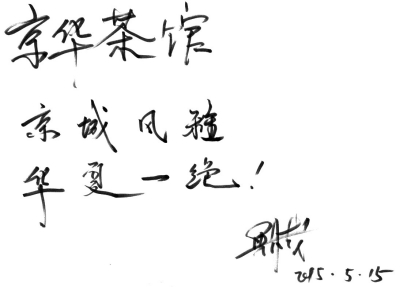 京华茶馆
京城风雅
华夏一绝！
2015.5.15